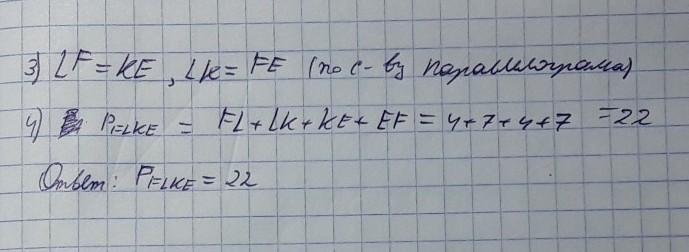 3) LF = KE, LK = FE (по с-ву параллелограма)
4) P FLKE = FL + LK + KE + EF = 4 + 7 + 4 + 7 = 22
Ответ: P FLKE = 22